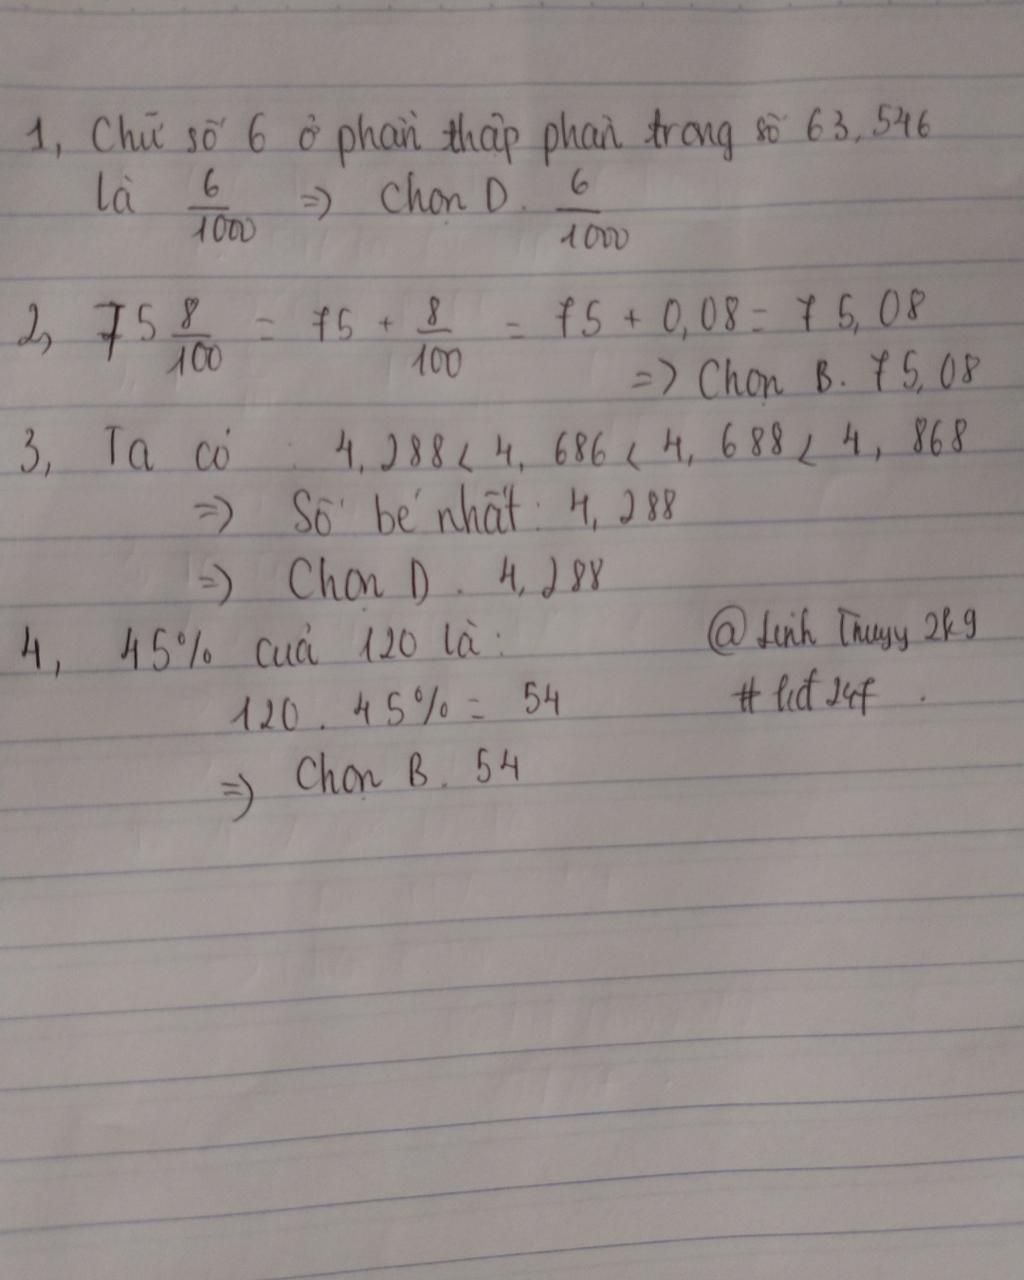 1, Chữ số 6 ở phần thập phân trong số 63,546
là 6/1000 => Chọn D. 6/1000
2, 75 8/100 = 75 + 8/100 = 75 + 0,08 = 75,08
=> Chọn B. 75,08
3, Ta có : 4,288 < 4,686 < 4,688 < 4,868
=> Số bé nhất: 4,288
=> Chọn D. 4,288
4, 45% của 120 là:
120 . 45% = 54
=> Chọn B. 54
@ Linh Thuyy 2k9
#